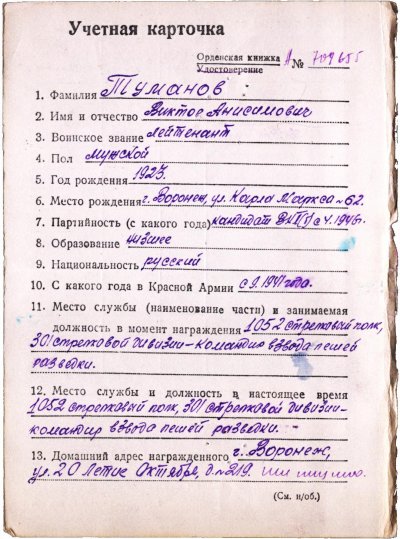 Учетная карточка
Орденская книжка А № 709655
Удостоверение
1. Фамилия Туманов
2. Имя и отчество Виктор Анисимович
3. Воинское звание лейтенант
4. Пол мужской
5. Год рождения 1923.
6. Место рождения г. Воронеж, ул. Карла Маркса № 62.
7. Партийность (с какого года) кандидат ВКП(б) с 4. 1946г.
8. Образование низшее
9. Национальность русский
10. С какого года в Красной Армии с 9. 1941 года.
11. Место службы (наименование части) и занимаемая
должность в момент награждения 1052 стрелковый полк,
301 стрелковой дивизии - командир взвода пешей
разведки.
12. Место службы и должность в настоящее время
1052 стрелковый полк, 301 стрелковой дивизии -
командир взвода пешей разведки.
13. Домашний адрес награжденного г. Воронеж,
ул. 20 Летие Октября, д. № 219.
(См. н/об.)